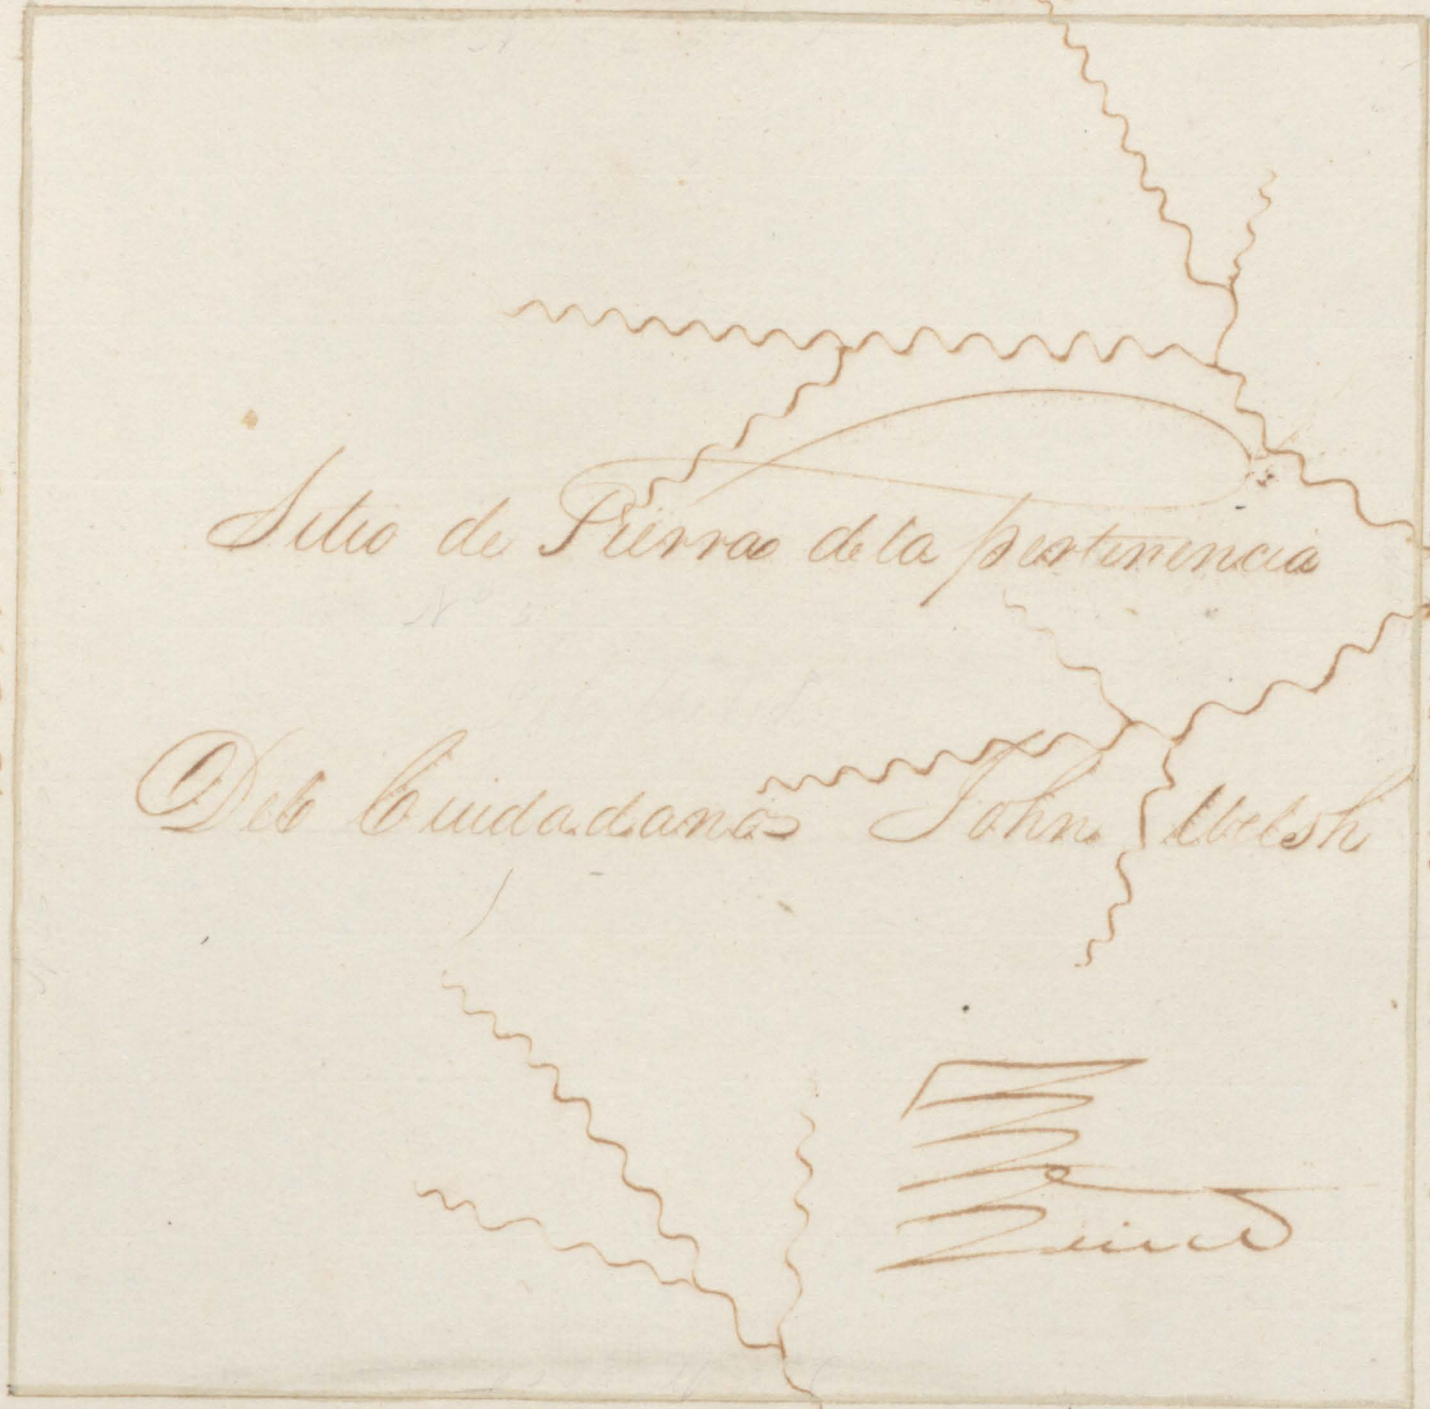 Sitio de Tierra de la pertenencia
Del Ciudadano John Welsh